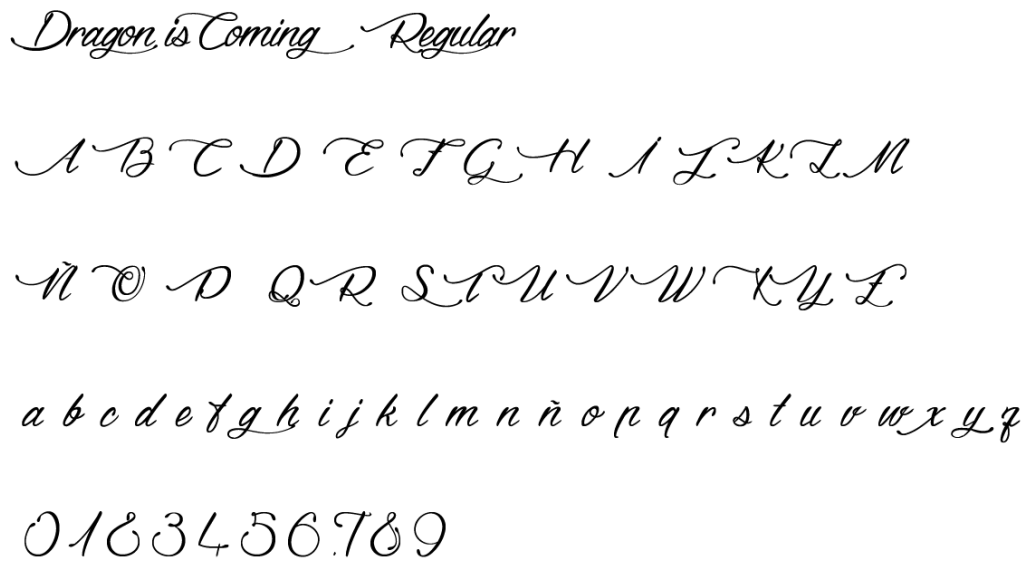 Dragon is Coming Regular
A B C D E F G H I J K L M
Ñ O P Q R S T U V W X Y Z
a b c d e f g h i j k l m n ñ o p q r s t u v w x y z
0 1 2 3 4 5 6 7 8 9